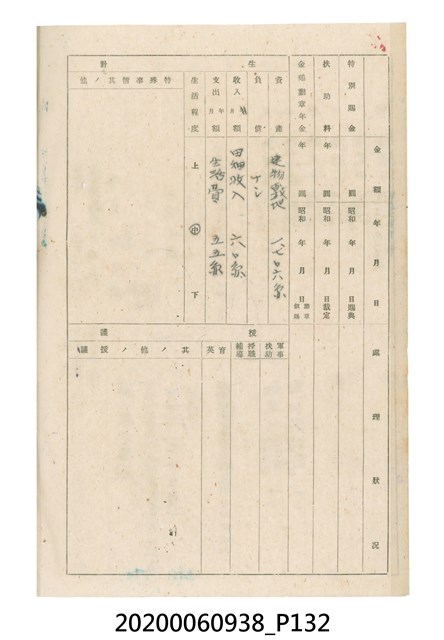 金額 年月日 處理狀況
特別賜金 圓 昭和 年 月 日賜與
扶助料 年 圓 昭和 年 月 日裁定
金鵄勳章年金 年 圓 昭和 年 月 日
生計
資產 建物敷地
負債 ナシ
收入 年月額 田畑收入 六〇
支出 年月額 生活費 五五
生活程度 上 中 下
特殊事情其ノ他
援護
軍事扶助
授職補導
育英
其ノ他ノ援護
20200060938_P132